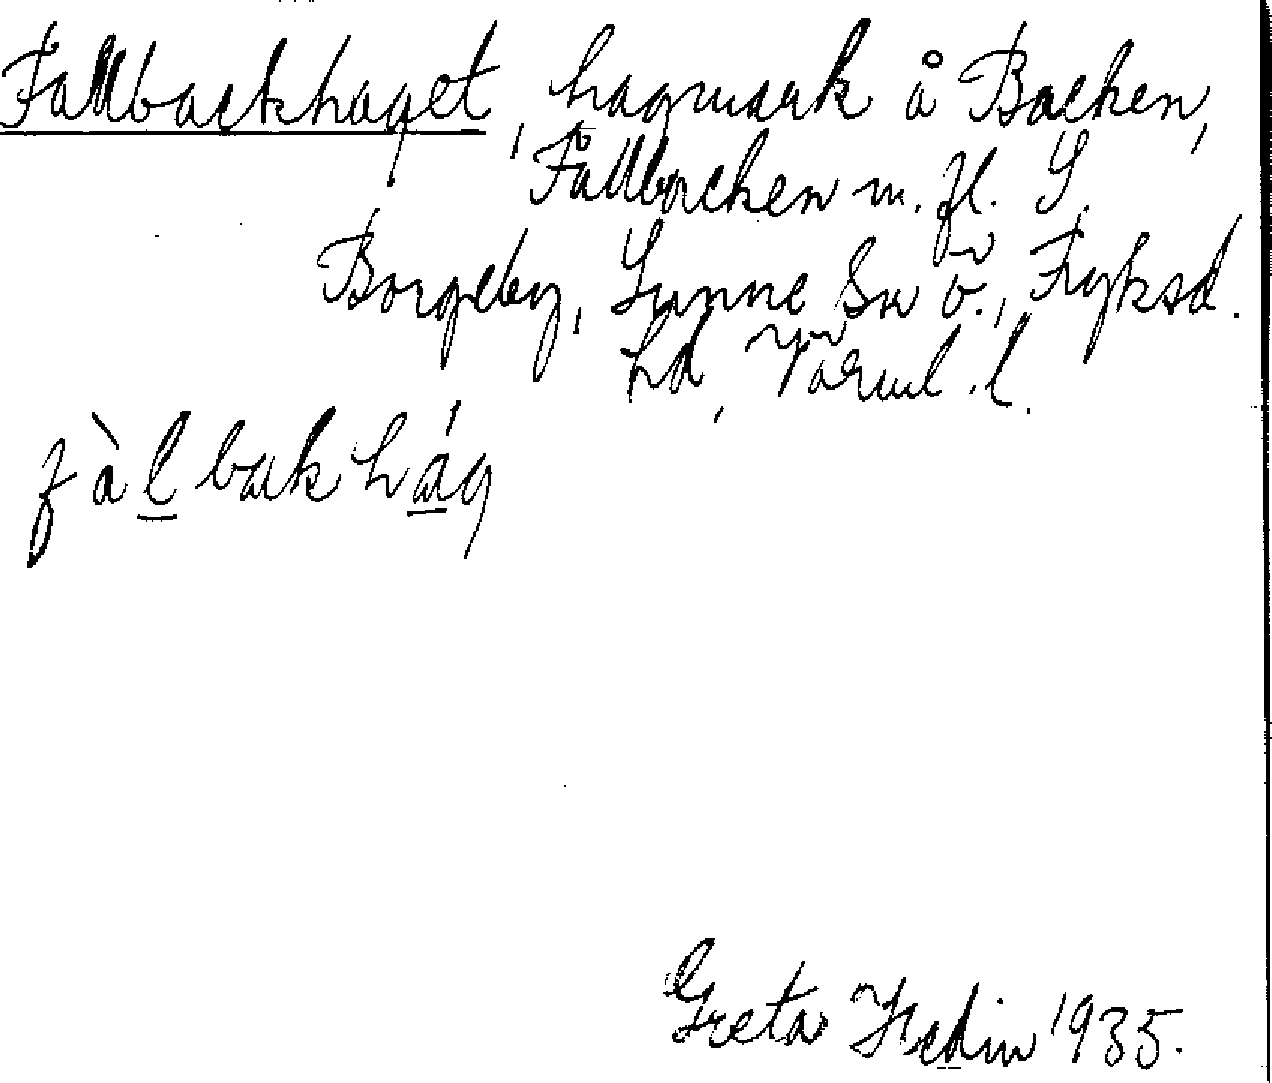 Fallbackhaget, hagmark å Backen,
Fållbacken m. fl. S.
Borgeby, Sunne Sn ö., Fryksd.
hd, Värml. l.
fàl bakhág
Greta Hedin 1935.